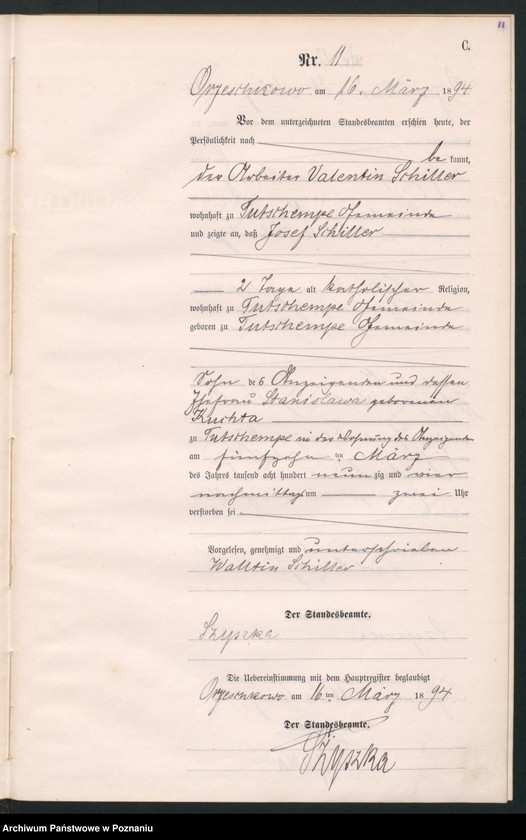 11
C.
Nr. 11
Orzeschkowo am 16. März 1894
Vor dem unterzeichneten Standesbeamten erschien heute, der
Persönlichkeit nach
be kannt,
der Arbeiter Valentin Schiller
wohnhaft zu Tutschempe Gemeinde
und zeigte an, daß Josef Schiller
2 Tage alt katholischer Religion,
wohnhaft zu Tutschempe Gemeinde
geboren zu Tutschempe Gemeinde
Sohn des Anzeigenden und dessen
Ehefrau Stanislawa geborenen
Kuchta
zu Tutschempe in der Wohnung des Anzeigenden
am fünfzehn ten März
des Jahres tausend acht hundert neun zig und vier
nachmittags um zwei Uhr
verstorben sei
Vorgelesen, genehmigt und unterschrieben
Walltin Schiller
Der Standesbeamte.
Szyszka
Die Uebereinstimmung mit dem Hauptregister beglaubigt
Orzeschkowo am 16 ten März 1894
Der Standesbeamte.
Szyszka
Archiwum Państwowe w Poznaniu